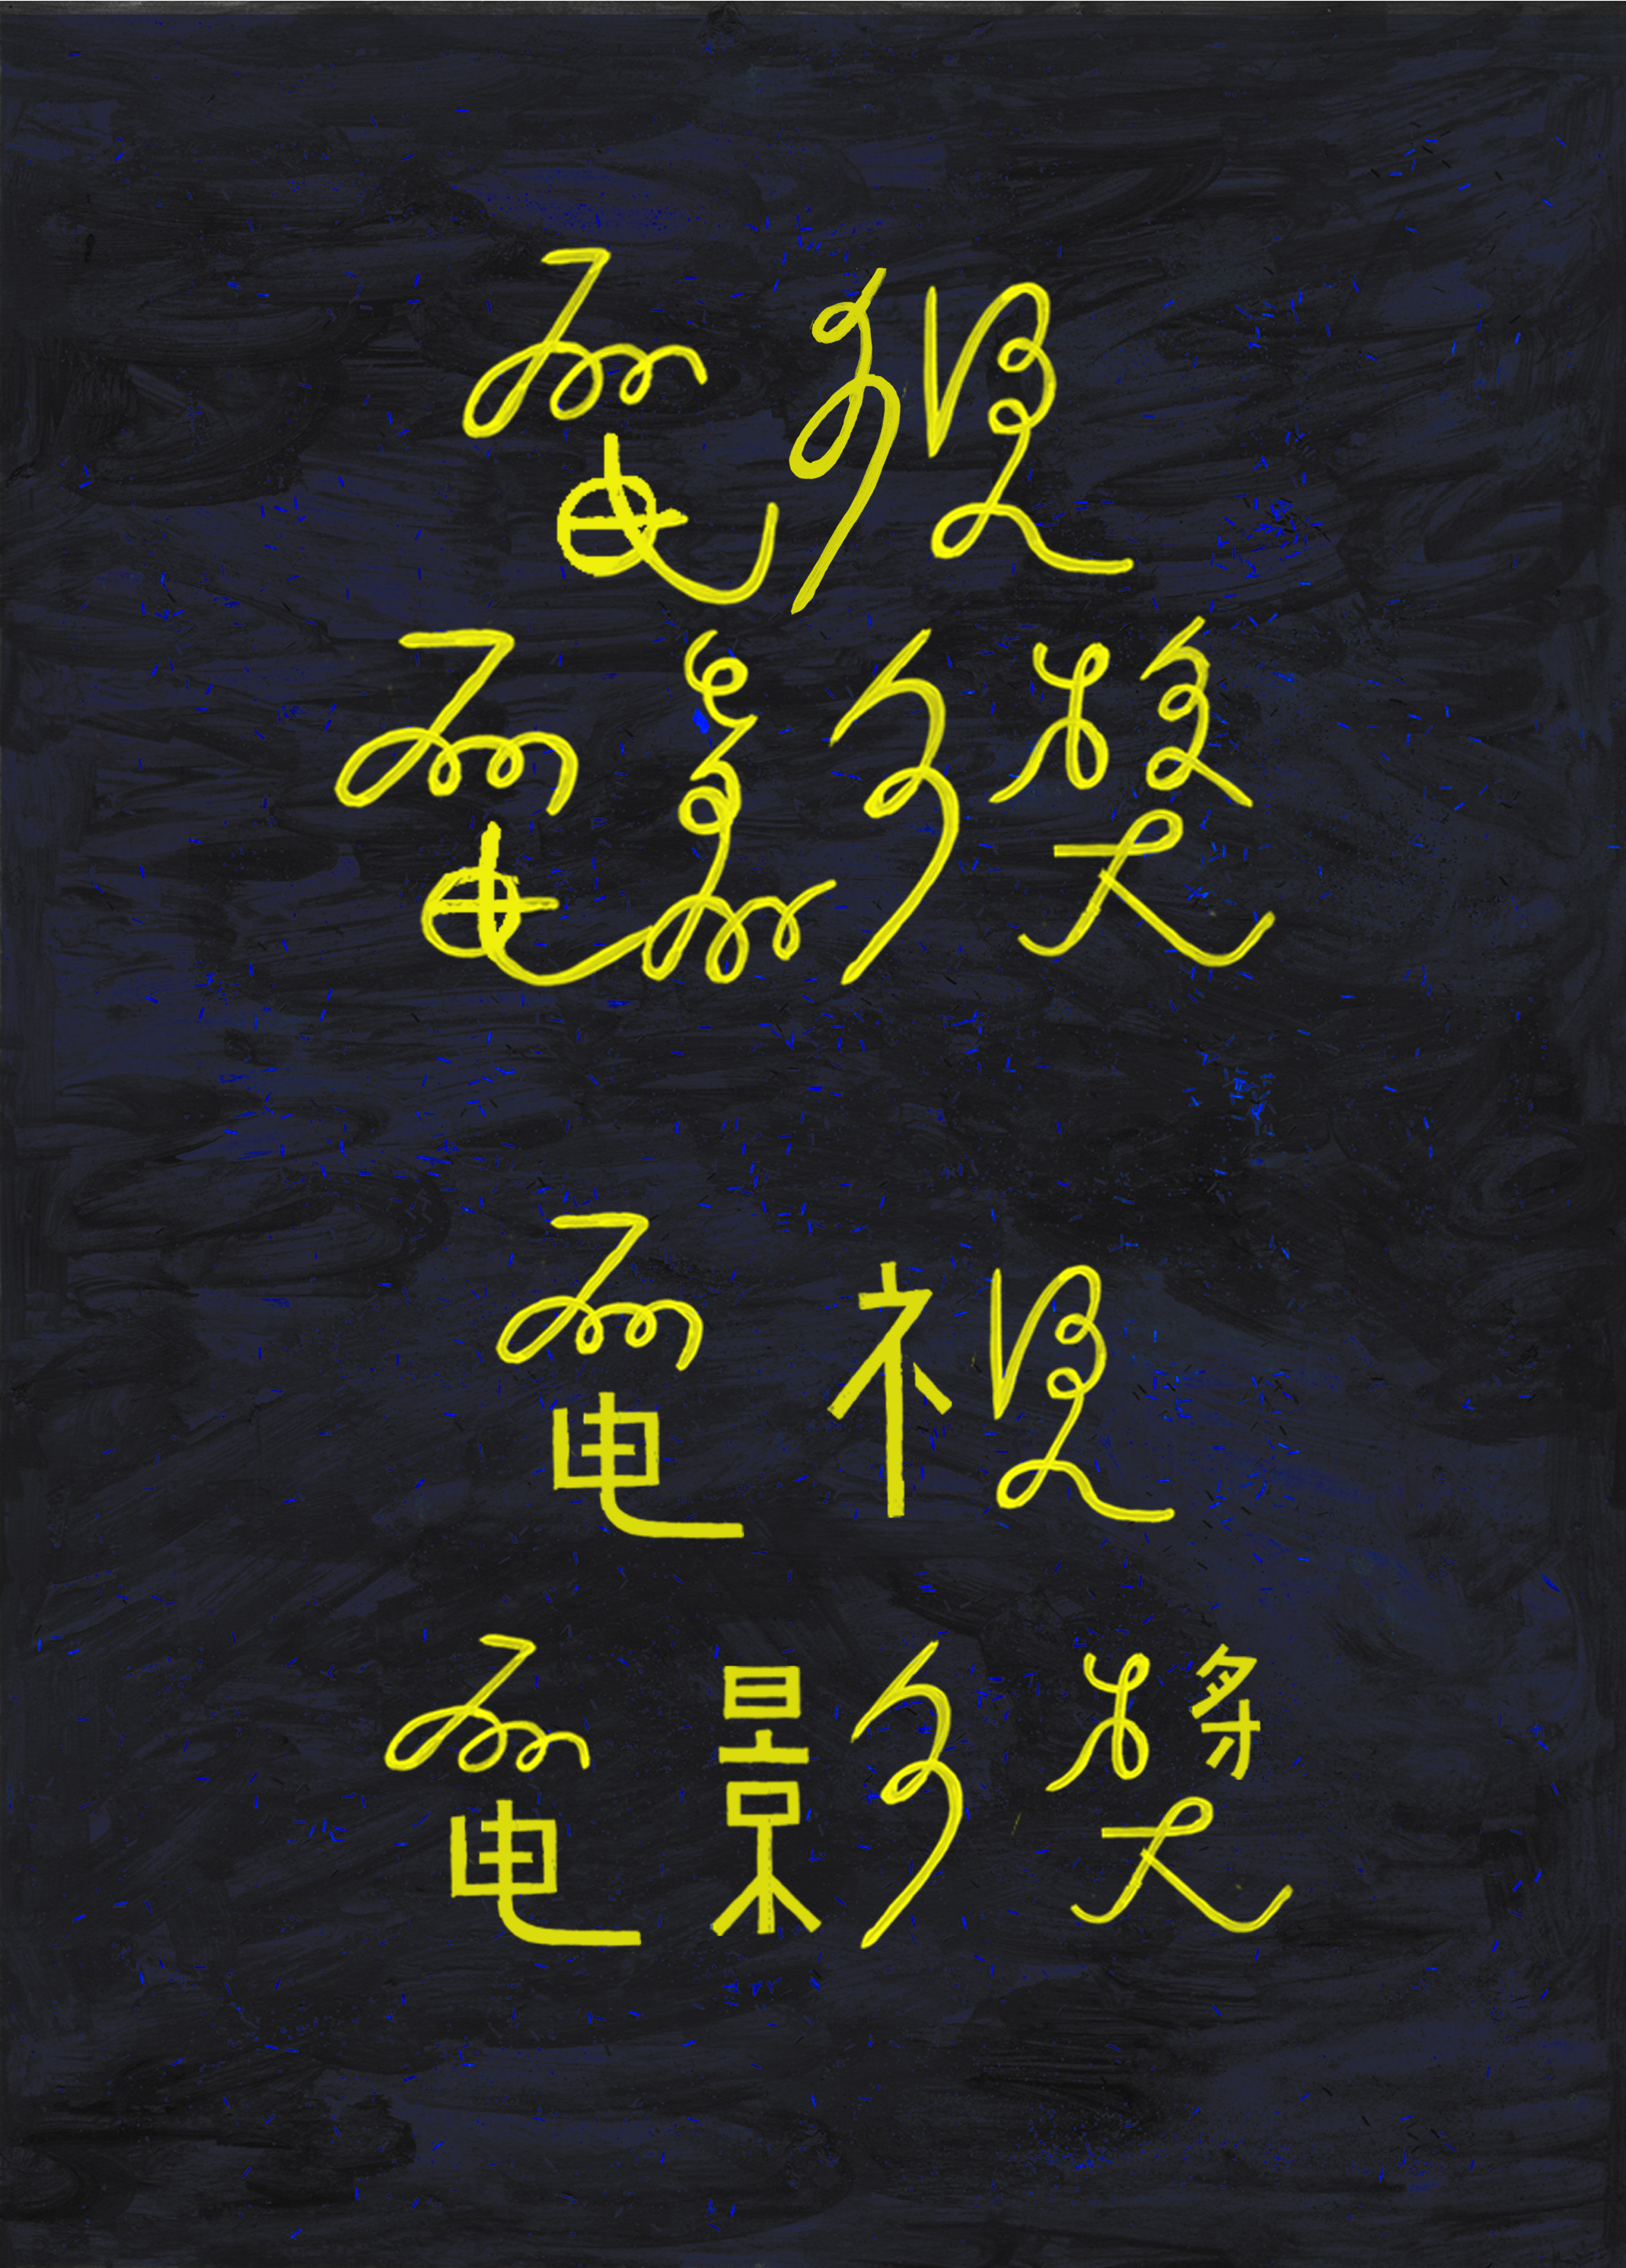 電視
電影獎
電視
電影獎